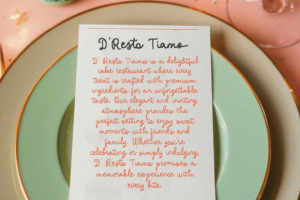 D' Resta Tiamo
D' Resta Tiamo is a delightful
cake restaurant where every
treat is crafted with premium
ingredients for an unforgettable
taste. Our elegant and inviting
atmosphere provides the
perfect setting to enjoy sweet
moments with friends and
family. Whether you're
celebrating or simply indulging,
D' Resta Tiamo promises a
memorable experience with
every bite.